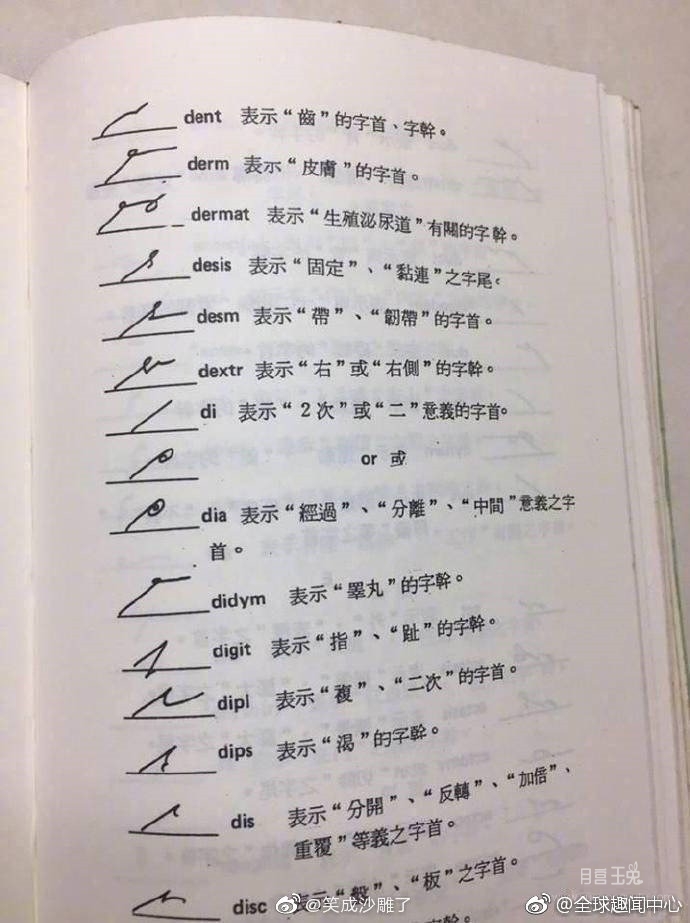 dent 表示“齒”的字首、字幹。
derm 表示“皮膚”的字首。
dermat 表示“生殖泌尿道”有關的字幹。
desis 表示“固定”、“黏連”之字尾。
desm 表示“帶”、“韌帶”的字首。
dextr 表示“右”或“右側”的字幹。
di 表示“2次”或“二”意義的字首。
or 或
dia 表示“經過”、“分離”、“中間”意義之字
首。
didym 表示“睪丸”的字幹。
digit 表示“指”、“趾”的字幹。
dipl 表示“複”、“二次”的字首。
dips 表示“渴”的字幹。
dis 表示“分開”、“反轉”、“加倍”、
重覆”等義之字首。
disc 表示“盤”、“板”之字首。
字幹。
月喜玉兔
@笑成沙雕了
@全球趣闻中心